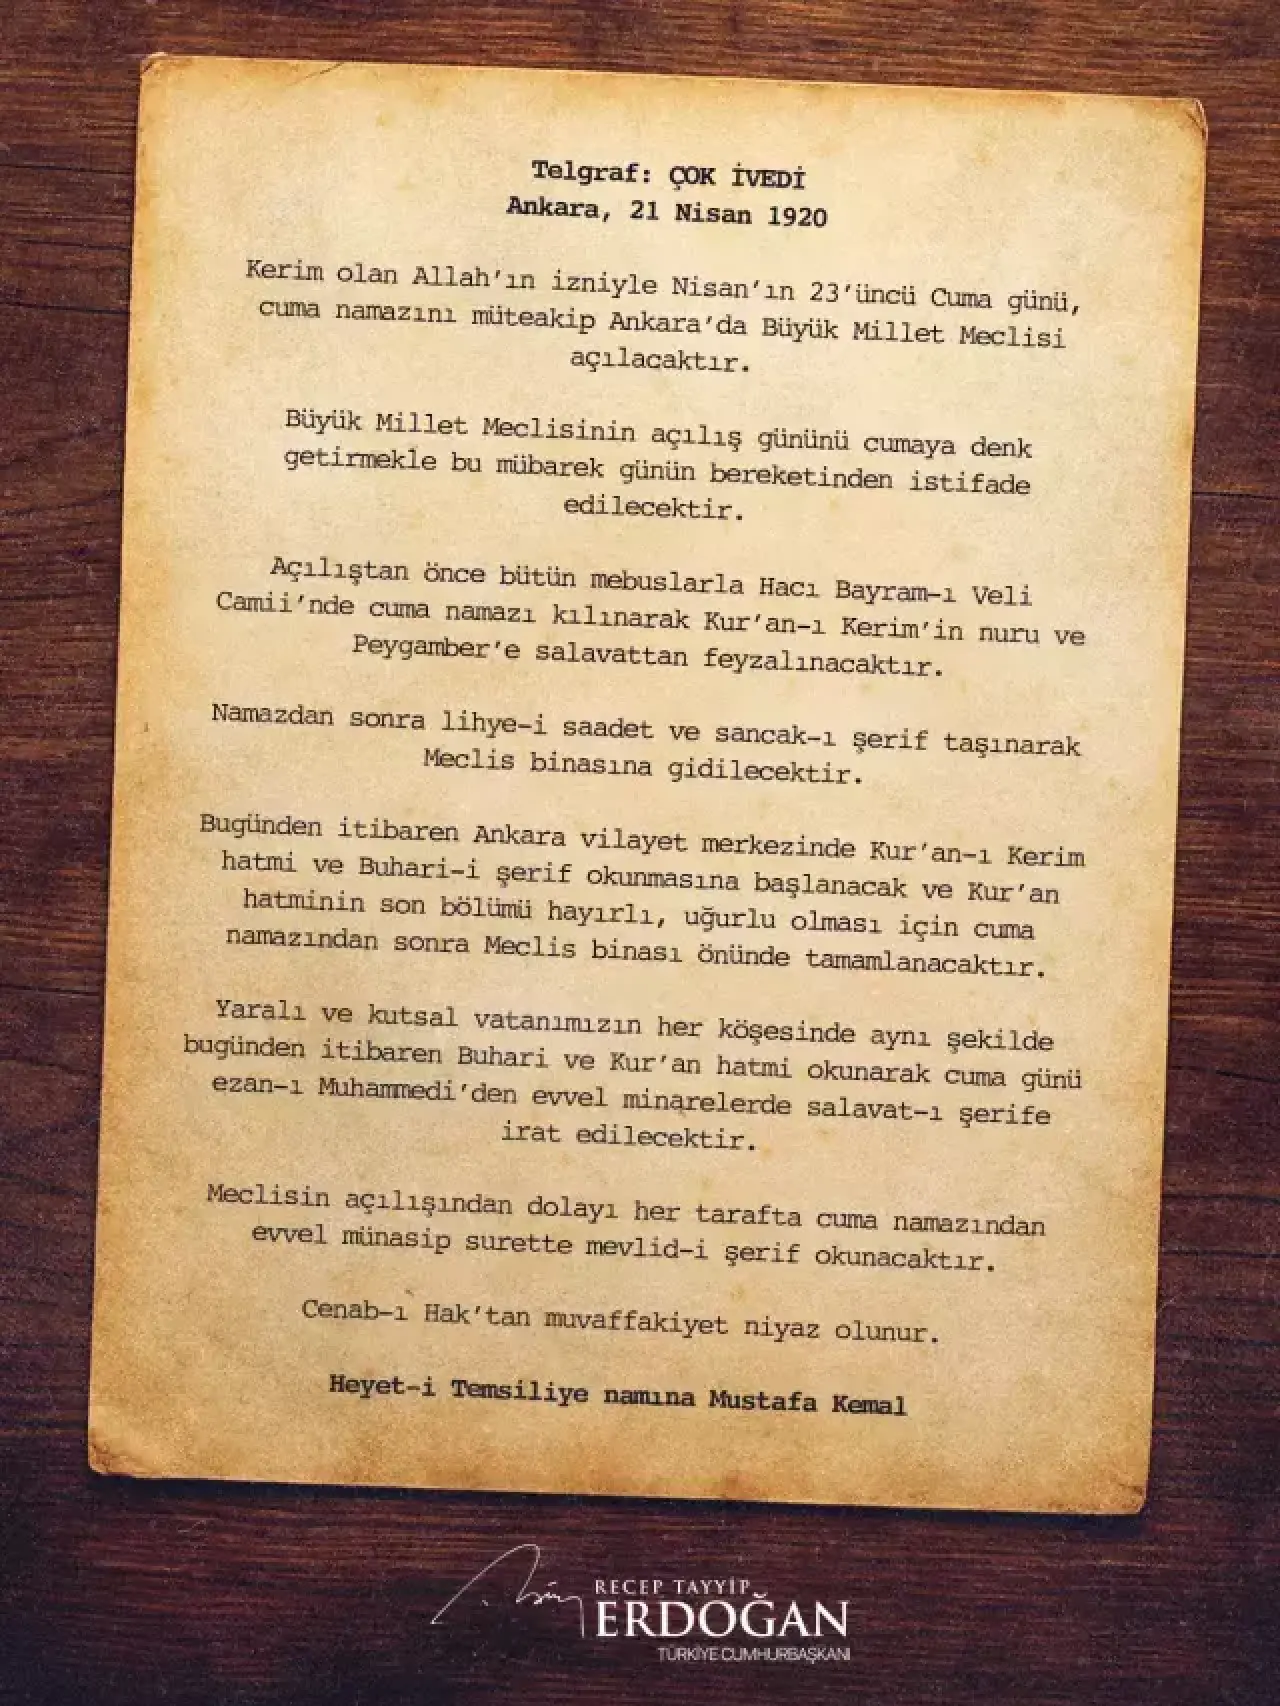 Telgraf: ÇOK İVEDİ
Ankara, 21 Nisan 1920
Kerim olan Allah'ın izniyle Nisan'ın 23'üncü Cuma günü,
cuma namazını müteakip Ankara'da Büyük Millet Meclisi
açılacaktır.
Büyük Millet Meclisinin açılış gününü cumaya denk
getirmekle bu mübarek günün bereketinden istifade
edilecektir.
Açılıştan önce bütün mebuslarla Hacı Bayram-ı Veli
Camii'nde cuma namazı kılınarak Kur'an-ı Kerim'in nuru ve
Peygamber'e salavattan feyzalınacaktır.
Namazdan sonra lihye-i saadet ve sancak-ı şerif taşınarak
Meclis binasına gidilecektir.
Bugünden itibaren Ankara vilayet merkezinde Kur'an-ı Kerim
hatmi ve Buhari-i şerif okunmasına başlanacak ve Kur'an
hatminin son bölümü hayırlı, uğurlu olması için cuma
namazından sonra Meclis binası önünde tamamlanacaktır.
Yaralı ve kutsal vatanımızın her köşesinde aynı şekilde
bugünden itibaren Buhari ve Kur'an hatmi okunarak cuma günü
ezan-ı Muhammedi'den evvel minarelerde salavat-ı şerife
irat edilecektir.
Meclisin açılışından dolayı her tarafta cuma namazından
evvel münasip surette mevlid-i şerif okunacaktır.
Cenab-ı Hak'tan muvaffakiyet niyaz olunur.
Heyet-i Temsiliye namına Mustafa Kemal
RECEP TAYYİP
ERDOĞAN
TÜRKİYE CUMHURBAŞKANI